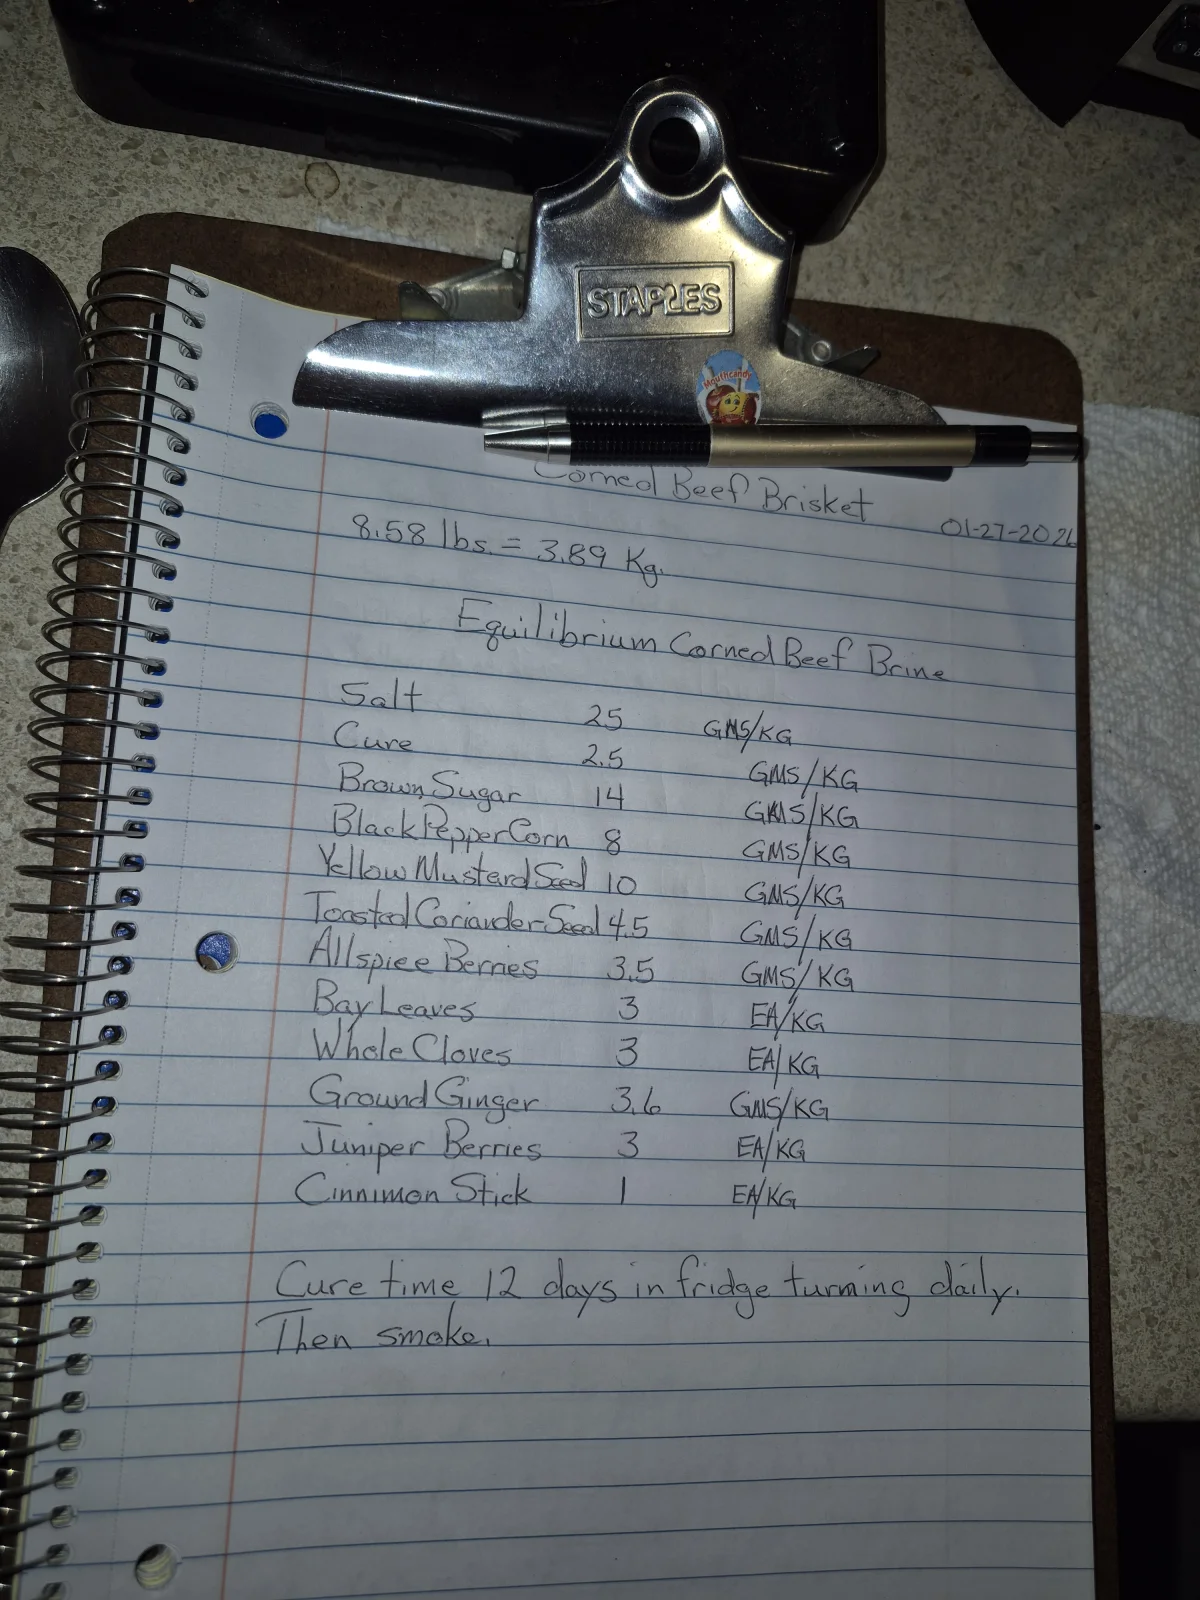 STAPLES
Mouthcandy
Corned Beef Brisket
01-27-2026
8.58 lbs. = 3.89 Kg.
Equilibrium Corned Beef Brine
Salt 25 GMS/KG
Cure 2.5 GMS/KG
Brown Sugar 14 GMS/KG
Black Pepper Corn 8 GMS/KG
Yellow Mustard Seed 10 GMS/KG
Toasted Coriander Seed 4.5 GMS/KG
Allspice Berries 3.5 GMS/KG
Bay Leaves 3 EA/KG
Whole Cloves 3 EA/KG
Ground Ginger 3.6 GMS/KG
Juniper Berries 3 EA/KG
Cinnimon Stick 1 EA/KG
Cure time 12 days in fridge turning daily.
Then smoke.